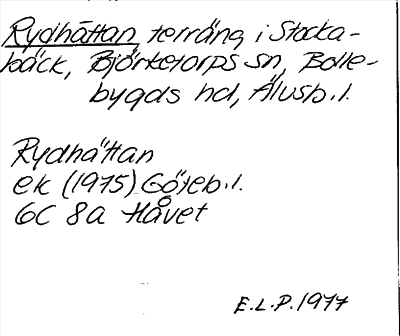 Rydhättan, terräng i Stocka-
bäck, Björketorps sn, Bolle-
bygds hd, Älvsb.l.
Rydhättan
ek (1975) Göteb.l.
6C 8a Håvet
E.L.P.1977